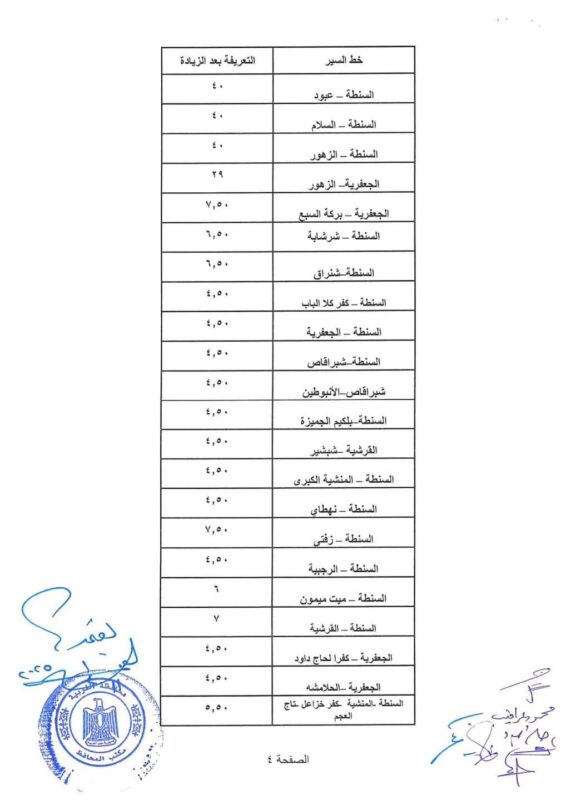 خط السير	التعريفة بعد الزيادة
السنطة – عبود	٤٠
السنطة – السلام	٤٠
السنطة – الزهور	٤٠
الجعفرية– الزهور	٢٩
الجعفرية – بركة السبع	٧,٥٠
السنطة – شرشابة	٦,٥٠
السنطة–شنراق	٦,٥٠
السنطة – كفر كلا الباب	٤,٥٠
السنطة – الجعفرية	٤,٥٠
السنطة–شبراقاص	٤,٥٠
شبراقاص–الأنبوطين	٤,٥٠
السنطة–بلكيم الجميزة	٤,٥٠
القرشية –شبشير	٤,٥٠
السنطة – المنشية الكبرى	٤,٥٠
السنطة – نهطاي	٤,٥٠
السنطة – زفتى	٧,٥٠
السنطة – الرجبية	٤,٥٠
السنطة – ميت ميمون	٦
السنطة – القرشية	٧
الجعفرية – كفرا لحاج داود	٤,٥٠
الجعفرية –الحلامشه	٤,٥٠
السنطة -المنشية -كفر خزاعل -تاج	٥,٥٠
العجم
يعتمد
٢٠٢٥
محافظة الغربية
مكتب المحافظ
الصفحة ٤